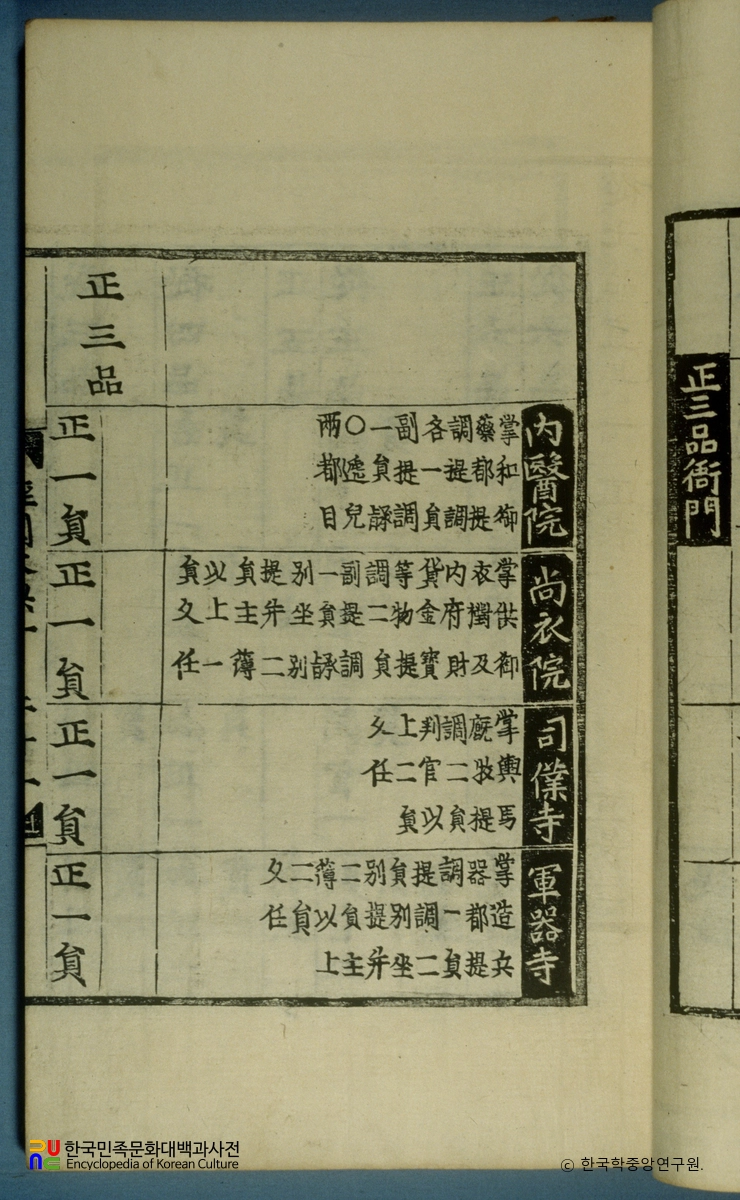 正三品衙門
內醫院
掌和御
藥都提
調提調
各一員
副提調
一員
〇遞兒
兩都目
尙衣院
掌供御
衣襨及
內府財
貨金寶
等物提
調二員
副提調
一員
別坐別
提并二
員主簿
以上一
員久任
司僕寺
掌輿馬
廐牧提
調二員
判官以
上二員
久任
軍器寺
掌造兵
器都提
調一員
提調二
員別坐
別提并
二員主
簿以上
二員
久任
正三品
正一員
正一員
正一員
正一員
한국민족문화대백과사전
Encyclopedia of Korean Culture
© 한국학중앙연구원.